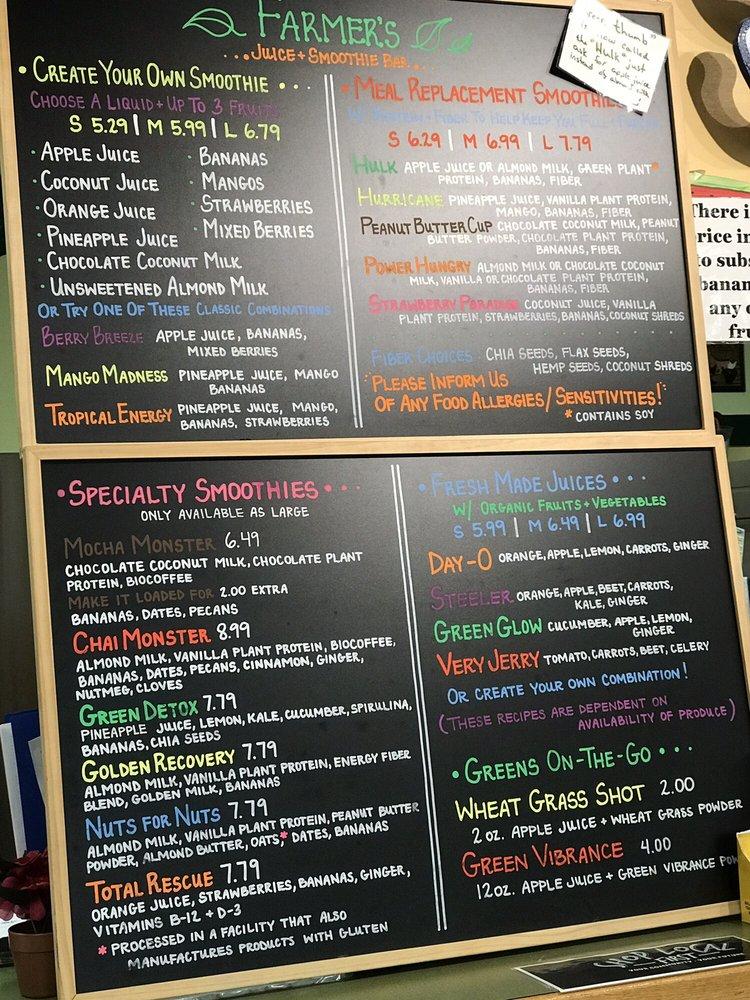 FARMER'S
...JUICE + SMOOTHIE BAR...
thumb"
is now called
the "Hulk" just
ask for apple juice
instead of almond milk
• CREATE YOUR OWN SMOOTHIE • • •
CHOOSE A LIQUID + UP TO 3 FRUITS
S 5.29 | M 5.99 | L 6.79
· APPLE JUICE
· COCONUT JUICE
· ORANGE JUICE
· PINEAPPLE JUICE
· CHOCOLATE COCONUT MILK
· UNSWEETENED ALMOND MILK
· BANANAS
· MANGOS
· STRAWBERRIES
· MIXED BERRIES
OR TRY ONE OF THESE CLASSIC COMBINATIONS
BERRY BREEZE APPLE JUICE, BANANAS,
MIXED BERRIES
MANGO MADNESS PINEAPPLE JUICE, MANGO
BANANAS
TROPICAL ENERGY PINEAPPLE JUICE, MANGO,
BANANAS, STRAWBERRIES
• MEAL REPLACEMENT SMOOTHIES
W/ PROTEIN + FIBER TO HELP KEEP YOU FULL +
S 6.29 | M 6.99 | L 7.79
HULK APPLE JUICE OR ALMOND MILK, GREEN PLANT*
PROTEIN, BANANAS, FIBER
HURRICANE PINEAPPLE JUICE, VANILLA PLANT PROTEIN,
MANGO, BANANAS, FIBER
PEANUT BUTTER CUP CHOCOLATE COCONUT MILK, PEANUT
BUTTER POWDER, CHOCOLATE PLANT PROTEIN,
BANANAS, FIBER
POWER HUNGRY ALMOND MILK OR CHOCOLATE COCONUT
MILK, VANILLA OR CHOCOLATE PLANT PROTEIN,
BANANAS, FIBER
STRAWBERRY PARADISE COCONUT JUICE, VANILLA
PLANT PROTEIN, STRAWBERRIES, BANANAS, COCONUT SHREDS
FIBER CHOICES CHIA SEEDS, FLAX SEEDS,
HEMP SEEDS, COCONUT SHREDS
PLEASE INFORM US
OF ANY FOOD ALLERGIES/SENSITIVITIES!
* CONTAINS SOY
There i
rice in
to subs
banan
any o
fru
• SPECIALTY SMOOTHIES • • •
ONLY AVAILABLE AS LARGE
MOCHA MONSTER 6.49
CHOCOLATE COCONUT MILK, CHOCOLATE PLANT
PROTEIN, BIOCOFFEE
MAKE IT LOADED FOR 2.00 EXTRA
BANANAS, DATES, PECANS
CHAI MONSTER 8.99
ALMOND MILK, VANILLA PLANT PROTEIN, BIOCOFFEE,
BANANAS, DATES, PECANS, CINNAMON, GINGER,
NUTMEG, CLOVES
GREEN DETOX 7.79
PINEAPPLE JUICE, LEMON, KALE, CUCUMBER, SPIRULINA,
BANANAS, CHIA SEEDS
GOLDEN RECOVERY 7.79
ALMOND MILK, VANILLA PLANT PROTEIN, ENERGY FIBER
BLEND, GOLDEN MILK, BANANAS
NUTS FOR NUTS 7.79
ALMOND MILK, VANILLA PLANT PROTEIN, PEANUT BUTTER
POWDER, ALMOND BUTTER, OATS,* DATES, BANANAS
TOTAL RESCUE 7.79
ORANGE JUICE, STRAWBERRIES, BANANAS, GINGER,
VITAMINS B-12 + D-3
* PROCESSED IN A FACILITY THAT ALSO
MANUFACTURES PRODUCTS WITH GLUTEN
• FRESH MADE JUICES • • •
W/ ORGANIC FRUITS + VEGETABLES
S 5.99 | M 6.49 | L 6.99
DAY-O ORANGE, APPLE, LEMON, CARROTS, GINGER
STEELER ORANGE, APPLE, BEET, CARROTS,
KALE, GINGER
GREEN GLOW CUCUMBER, APPLE, LEMON,
GINGER
VERY JERRY TOMATO, CARROTS, BEET, CELERY
OR CREATE YOUR OWN COMBINATION!
(THESE RECIPES ARE DEPENDENT ON
AVAILABILITY OF PRODUCE)
• GREENS ON-THE-GO • • •
WHEAT GRASS SHOT 2.00
2 OZ. APPLE JUICE + WHEAT GRASS POWDER
GREEN VIBRANCE 4.00
12OZ. APPLE JUICE + GREEN VIBRANCE POW
SHOP LOCAL
FIRST
YOUR COMMUNITY · YOUR FUTURE